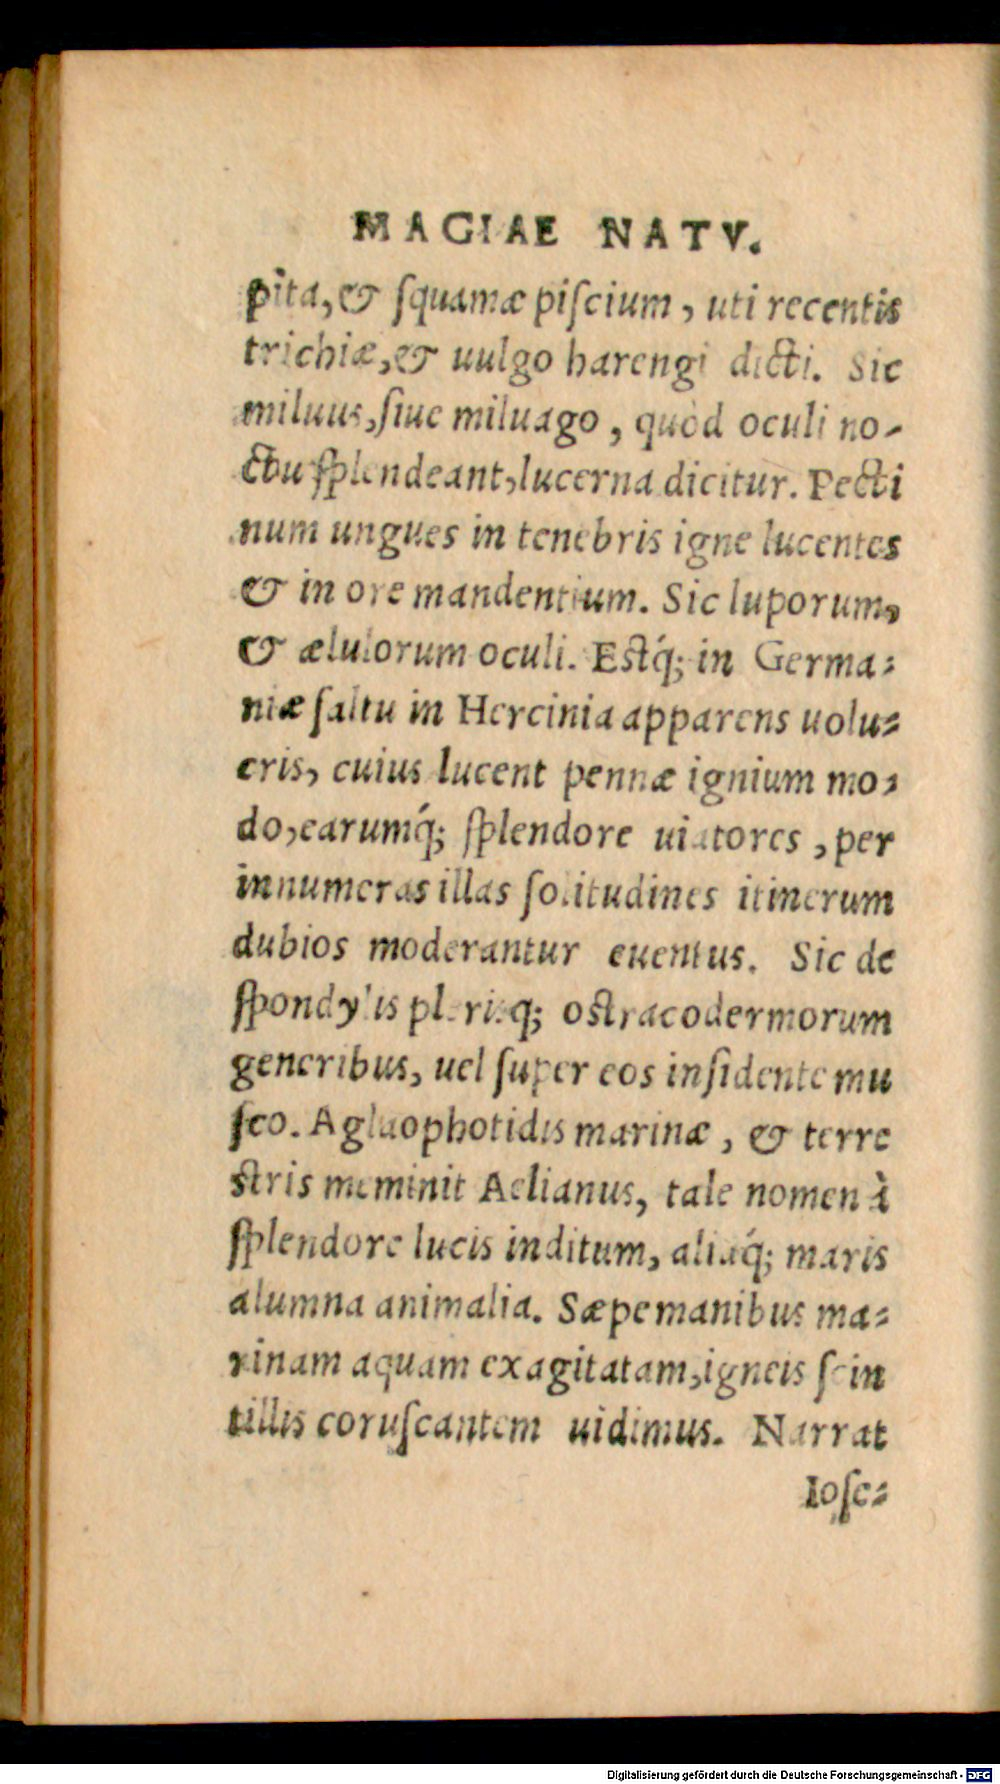 MAGIAE NATV.
pita, & ſquamæ piſcium, uti recentis
trichiæ, & uulgo harengi dicti. Sic
miluus, ſiue miluago, quòd oculi no-
ctu ſplendeant, lucerna dicitur. Pecti
num ungues in tenebris igne lucentes
& in ore mandentium. Sic luporum,
& ælulorum oculi. Eſtq́; in Germa-
niæ ſaltu in Hercinia apparens uolu-
cris, cuius lucent pennæ ignium mo-
do, earumq́; ſplendore uiatores, per
innumeras illas ſolitudines itinerum
dubios moderantur euentus. Sic de
ſpondylis pleriſq; oſtracodermorum
generibus, uel ſuper eos inſidente mu
ſco. Aglaophotidis marinæ, & terre
ſtris meminit Aelianus, tale nomen à
ſplendore lucis inditum, aliaq́; maris
alumna animalia. Sæpe manibus ma-
rinam aquam exagitatam, igneis ſcin
tillis coruſcantem uidimus. Narrat
Ioſe-
Digitalisierung gefördert durch die Deutsche Forschungsgemeinschaft - DFG